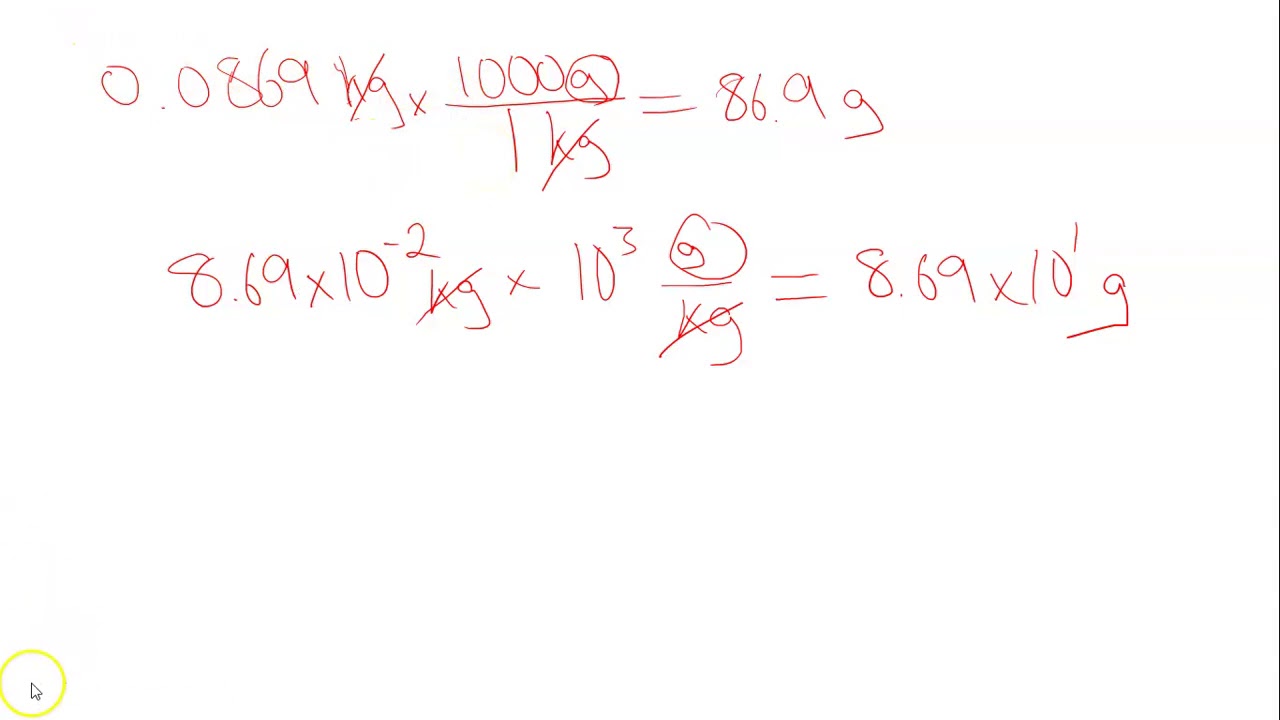 0.0869 kg × 1000 g / 1 kg = 86.9 g
8.69 × 10⁻² kg × 10³ g / kg = 8.69 × 10¹ g